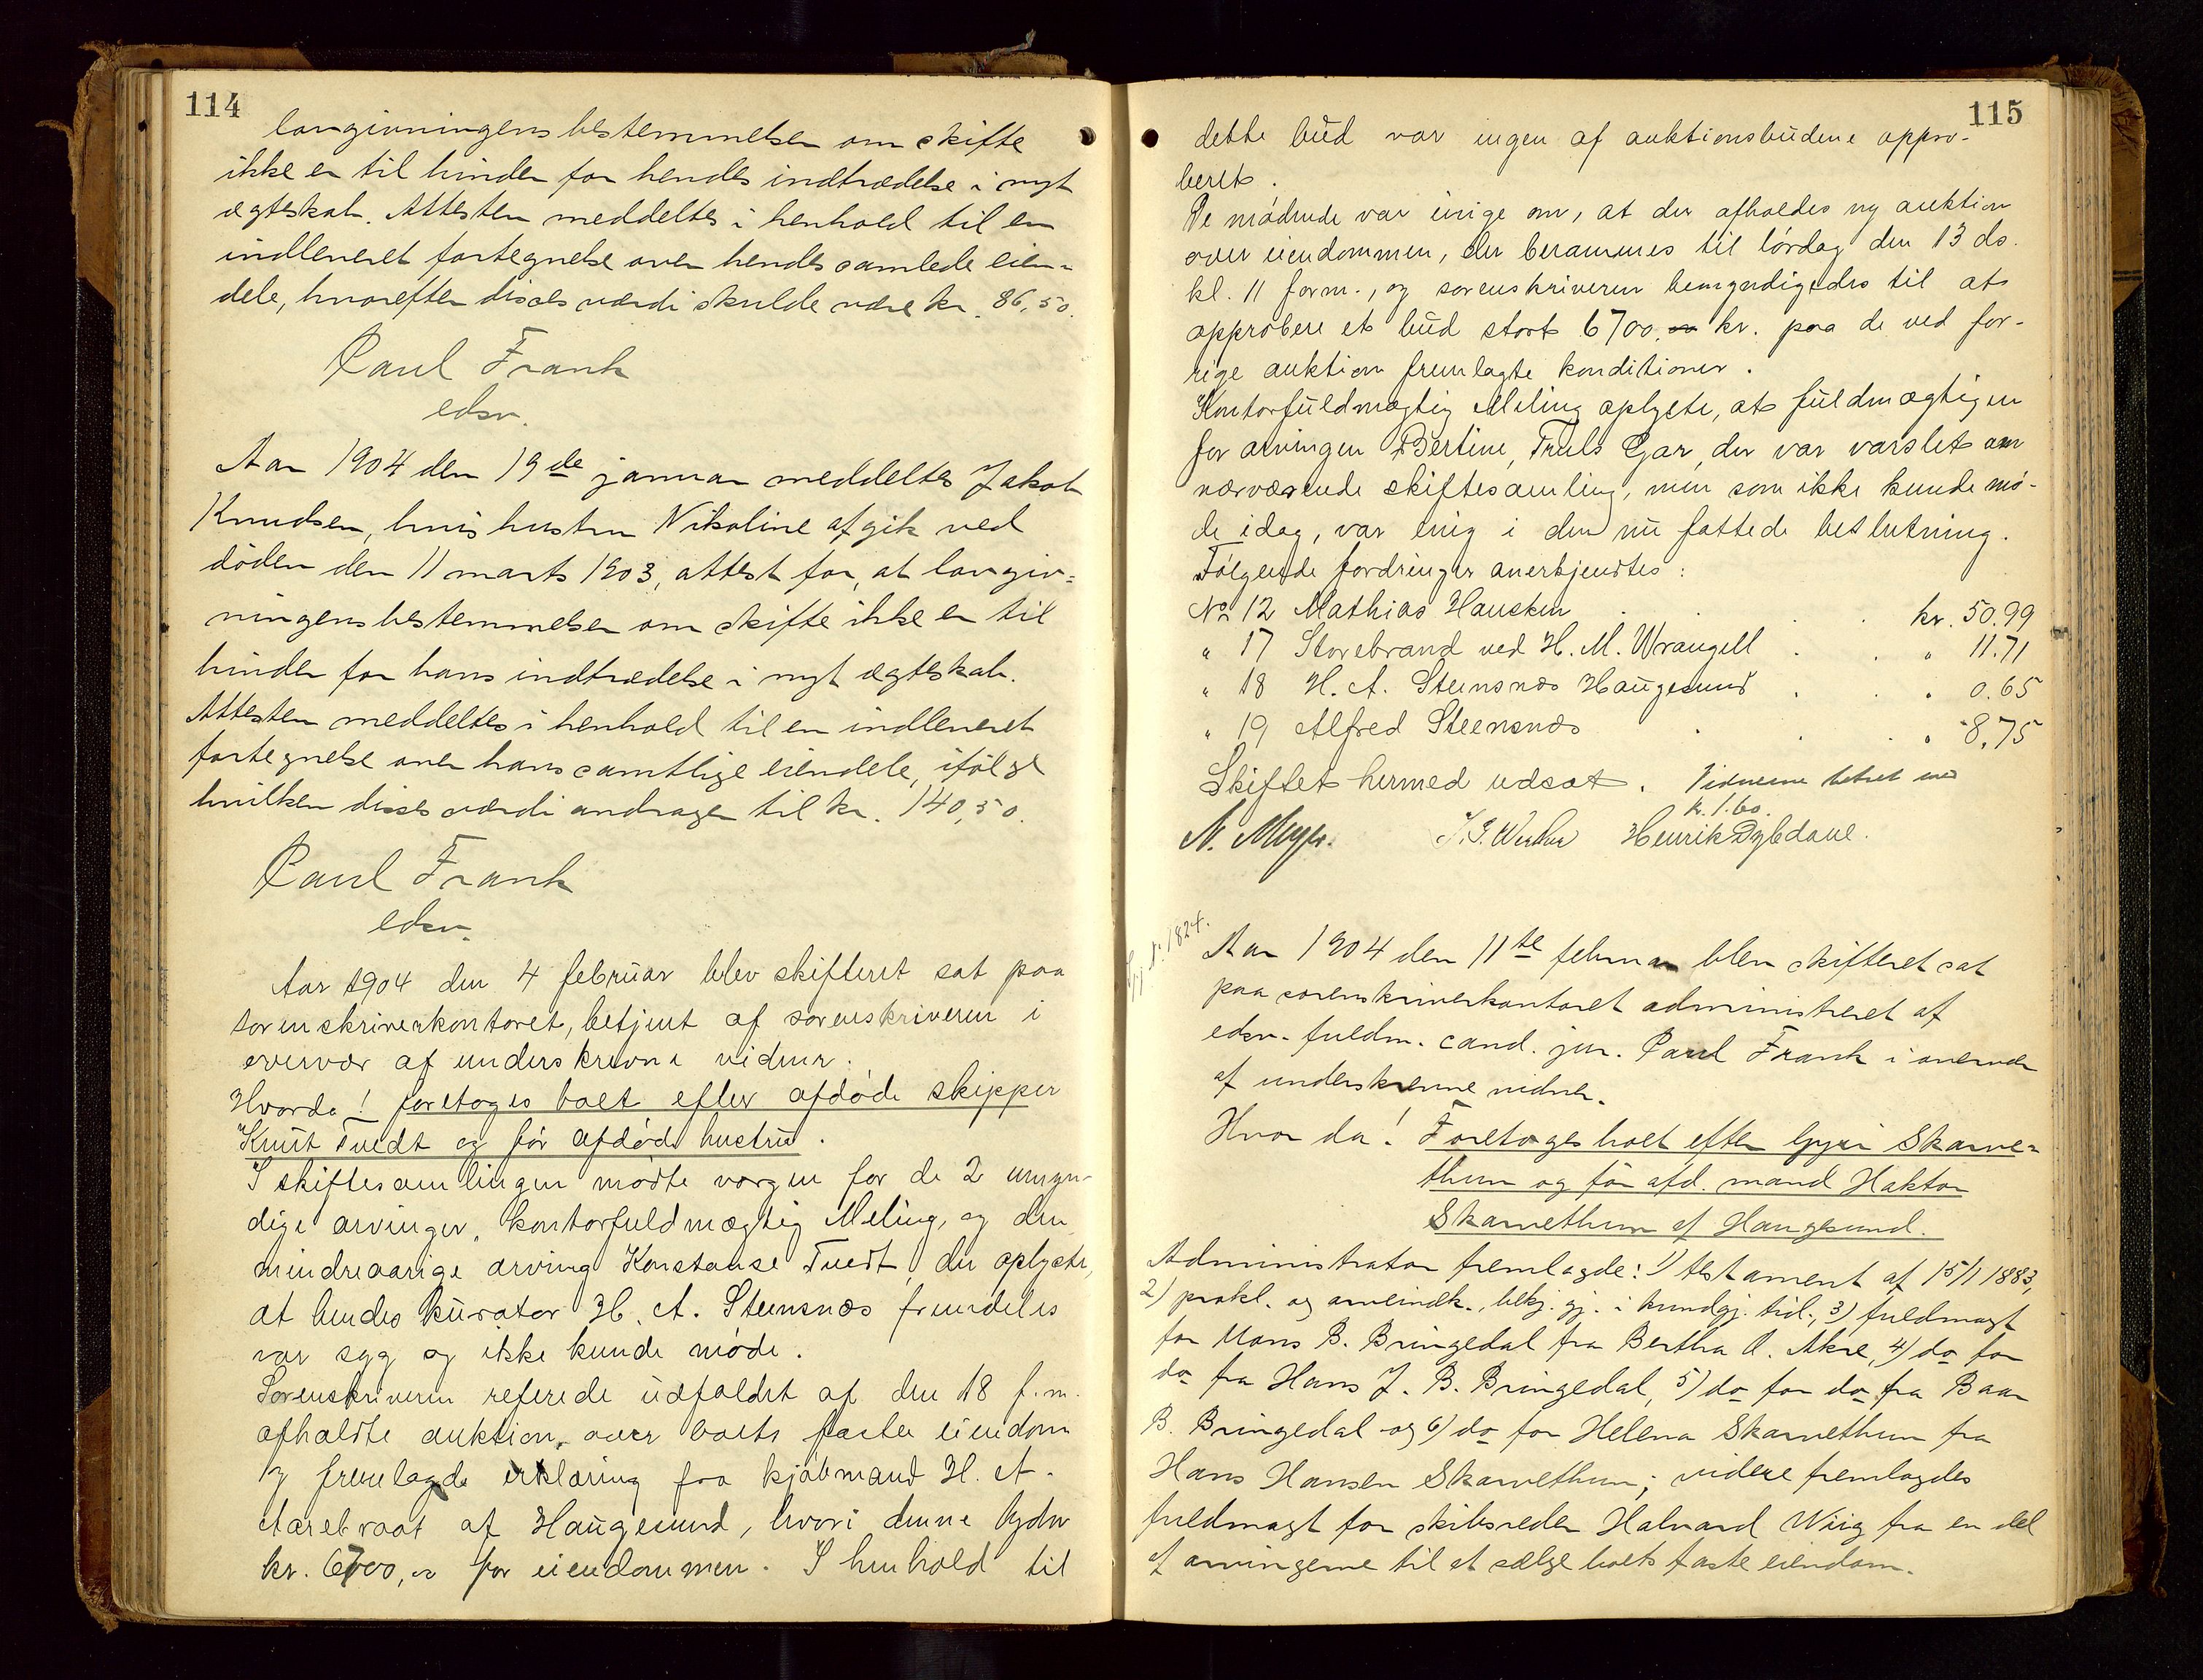 114
lovgivningens bestemmelser om skifte
ikke er til hinder for hendes indtrædelse i nyt
ægteskab. Attesten meddeltes i henhold til en
indleveret fortegnelse over hendes samlede eien-
dele, hvorefter disses værdi skulde være kr. 86,50.
Paul Frank
edsv.
Aar 1904 den 19de januar meddeltes Jakob
Knudsen, hvis hustru Nikoline afgik ved
døden den 11 marts 1903, attest for, at lovgiv=
ningens bestemmelser om skifte ikke er til
hinder for hans indtrædelse i nyt ægteskab.
Attesten meddeltes i henhold til en indleveret
fortegnelse over hans samtlige eiendele, ifølge
hvilken disses værdi andrager til kr. 140,50.
Paul Frank
edsv.
Aar 1904 den 4 februar blev skifteret sat paa
sorenskriverkontoret, betjent af sorenskriveren i
overvær af underskrevne vidner.
Hvorda! foretoges boet efter afdøde skipper
Knut Tvedt og før afdøde hustru.
I skiftesamlingen mødte vorgen for de 2 umyn-
dige arvinger, kontorfuldmægtig Meling, og den
mindreaarige arving Konstanse Tvedt, der oplyste,
at hendes kurator H. A. Steensnæs fremdeles
var syg og ikke kunde møde.
Sorenskriveren referede udfaldet af den 18 f.m.
afholdte auktion over boets faste eiendom
og fremlagde erklæring fra kjøbmand H. A.
Aarebroat af Haugesund, hvori denne byder
kr. 6700,00 for eiendommen. I henhold til
115
dette bud var ingen af auktionsbudene appro-
beret.
De mødende var enige om, at der afholdes ny auktion
over eiendommen, der berammes til lørdag den 13 ds.
kl. 11 form., og sorenskriveren bemyndigedes til at
approbere et bud stort 6700, kr. paa de ved for-
rige auktion fremlagte konditioner.
Kontorfuldmægtig Meling oplyste, at fuldmægtigen
for arvingen Bertine, Truls Gar, der var varslet om
nærværende skiftesamling, men som ikke kunde mø-
de idag, var enig i den nu fattede beslutning.
Følgende fordringer anerkjendtes:
No 12 Mathias Hausken . . . kr. 50.99
" 17 Storebrand ved H. M. Wrangell . . " 11.71
" 18 H. A. Steensnæs Haugesund . . " 0.65
" 19 Alfred Steensnæs . . . " 8.75
Skiftet hermed udsat. Vidnerne betalt med
kr. 1.60.
N. Meyer. Henrik Dybdahl.
1824.
Aar 1904 den 11te februar blev skifteret sat
paa sorenskriverkontoret administreret af
edsv. fuldm. cand. jur. Paul Frank i overvær
af underskrevne vidner.
Hvor da! Foretoges boet efter Gyri Skarve=
thun og før afd. mand Haktor
Skarvethun af Haugesund.
Administrator fremlagde: 1) testament af 15/1 1883,
2) prokl. og arveindk., bekj. gj. i kundgj. tid., 3) fuldmagt
for Mons B. Bringedal fra Bertha O. Akre, 4) do for
do fra Hans J. B. Bringedal, 5) do for do fra Baar
B. Bringedal og 6) do for Helena Skarvethun fra
Hans Hansen Skarvethun; videre fremlagdes
fuldmagt for skibsreder Halvard Wiig fra en del
af arvingerne til at sælge boets faste eiendom.